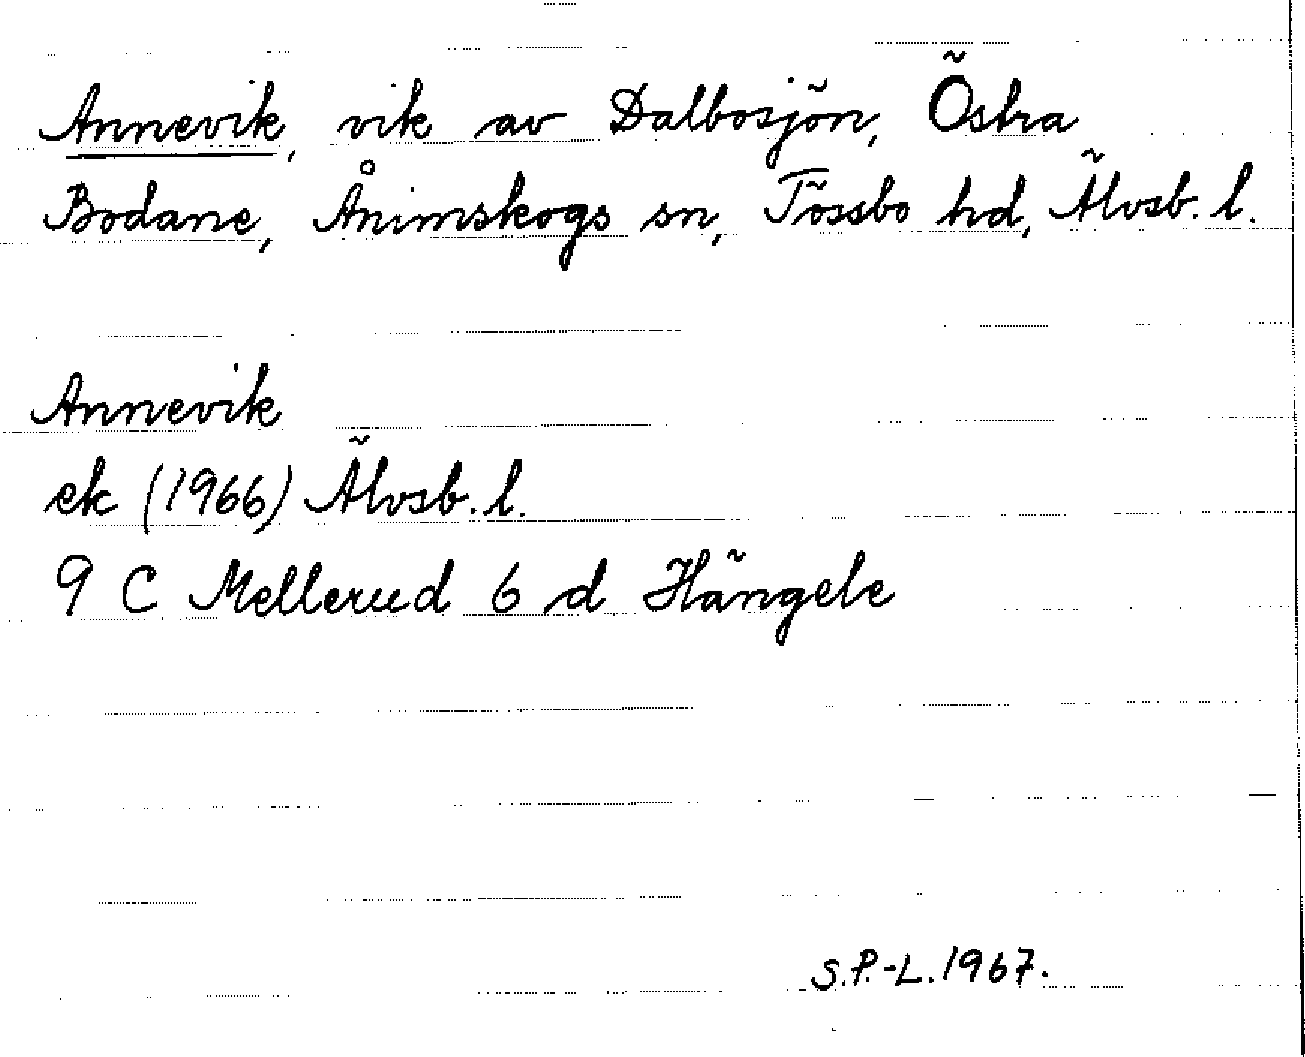 Annevik, vik av Dalbosjön, Östra
Bodane, Ånimskogs sn, Tössbo hd, Älvsb. l.
Annevik
ek (1966) Älvsb. l.
9 C Mellerud 6 d Hängele
S.P.-L. 1967.